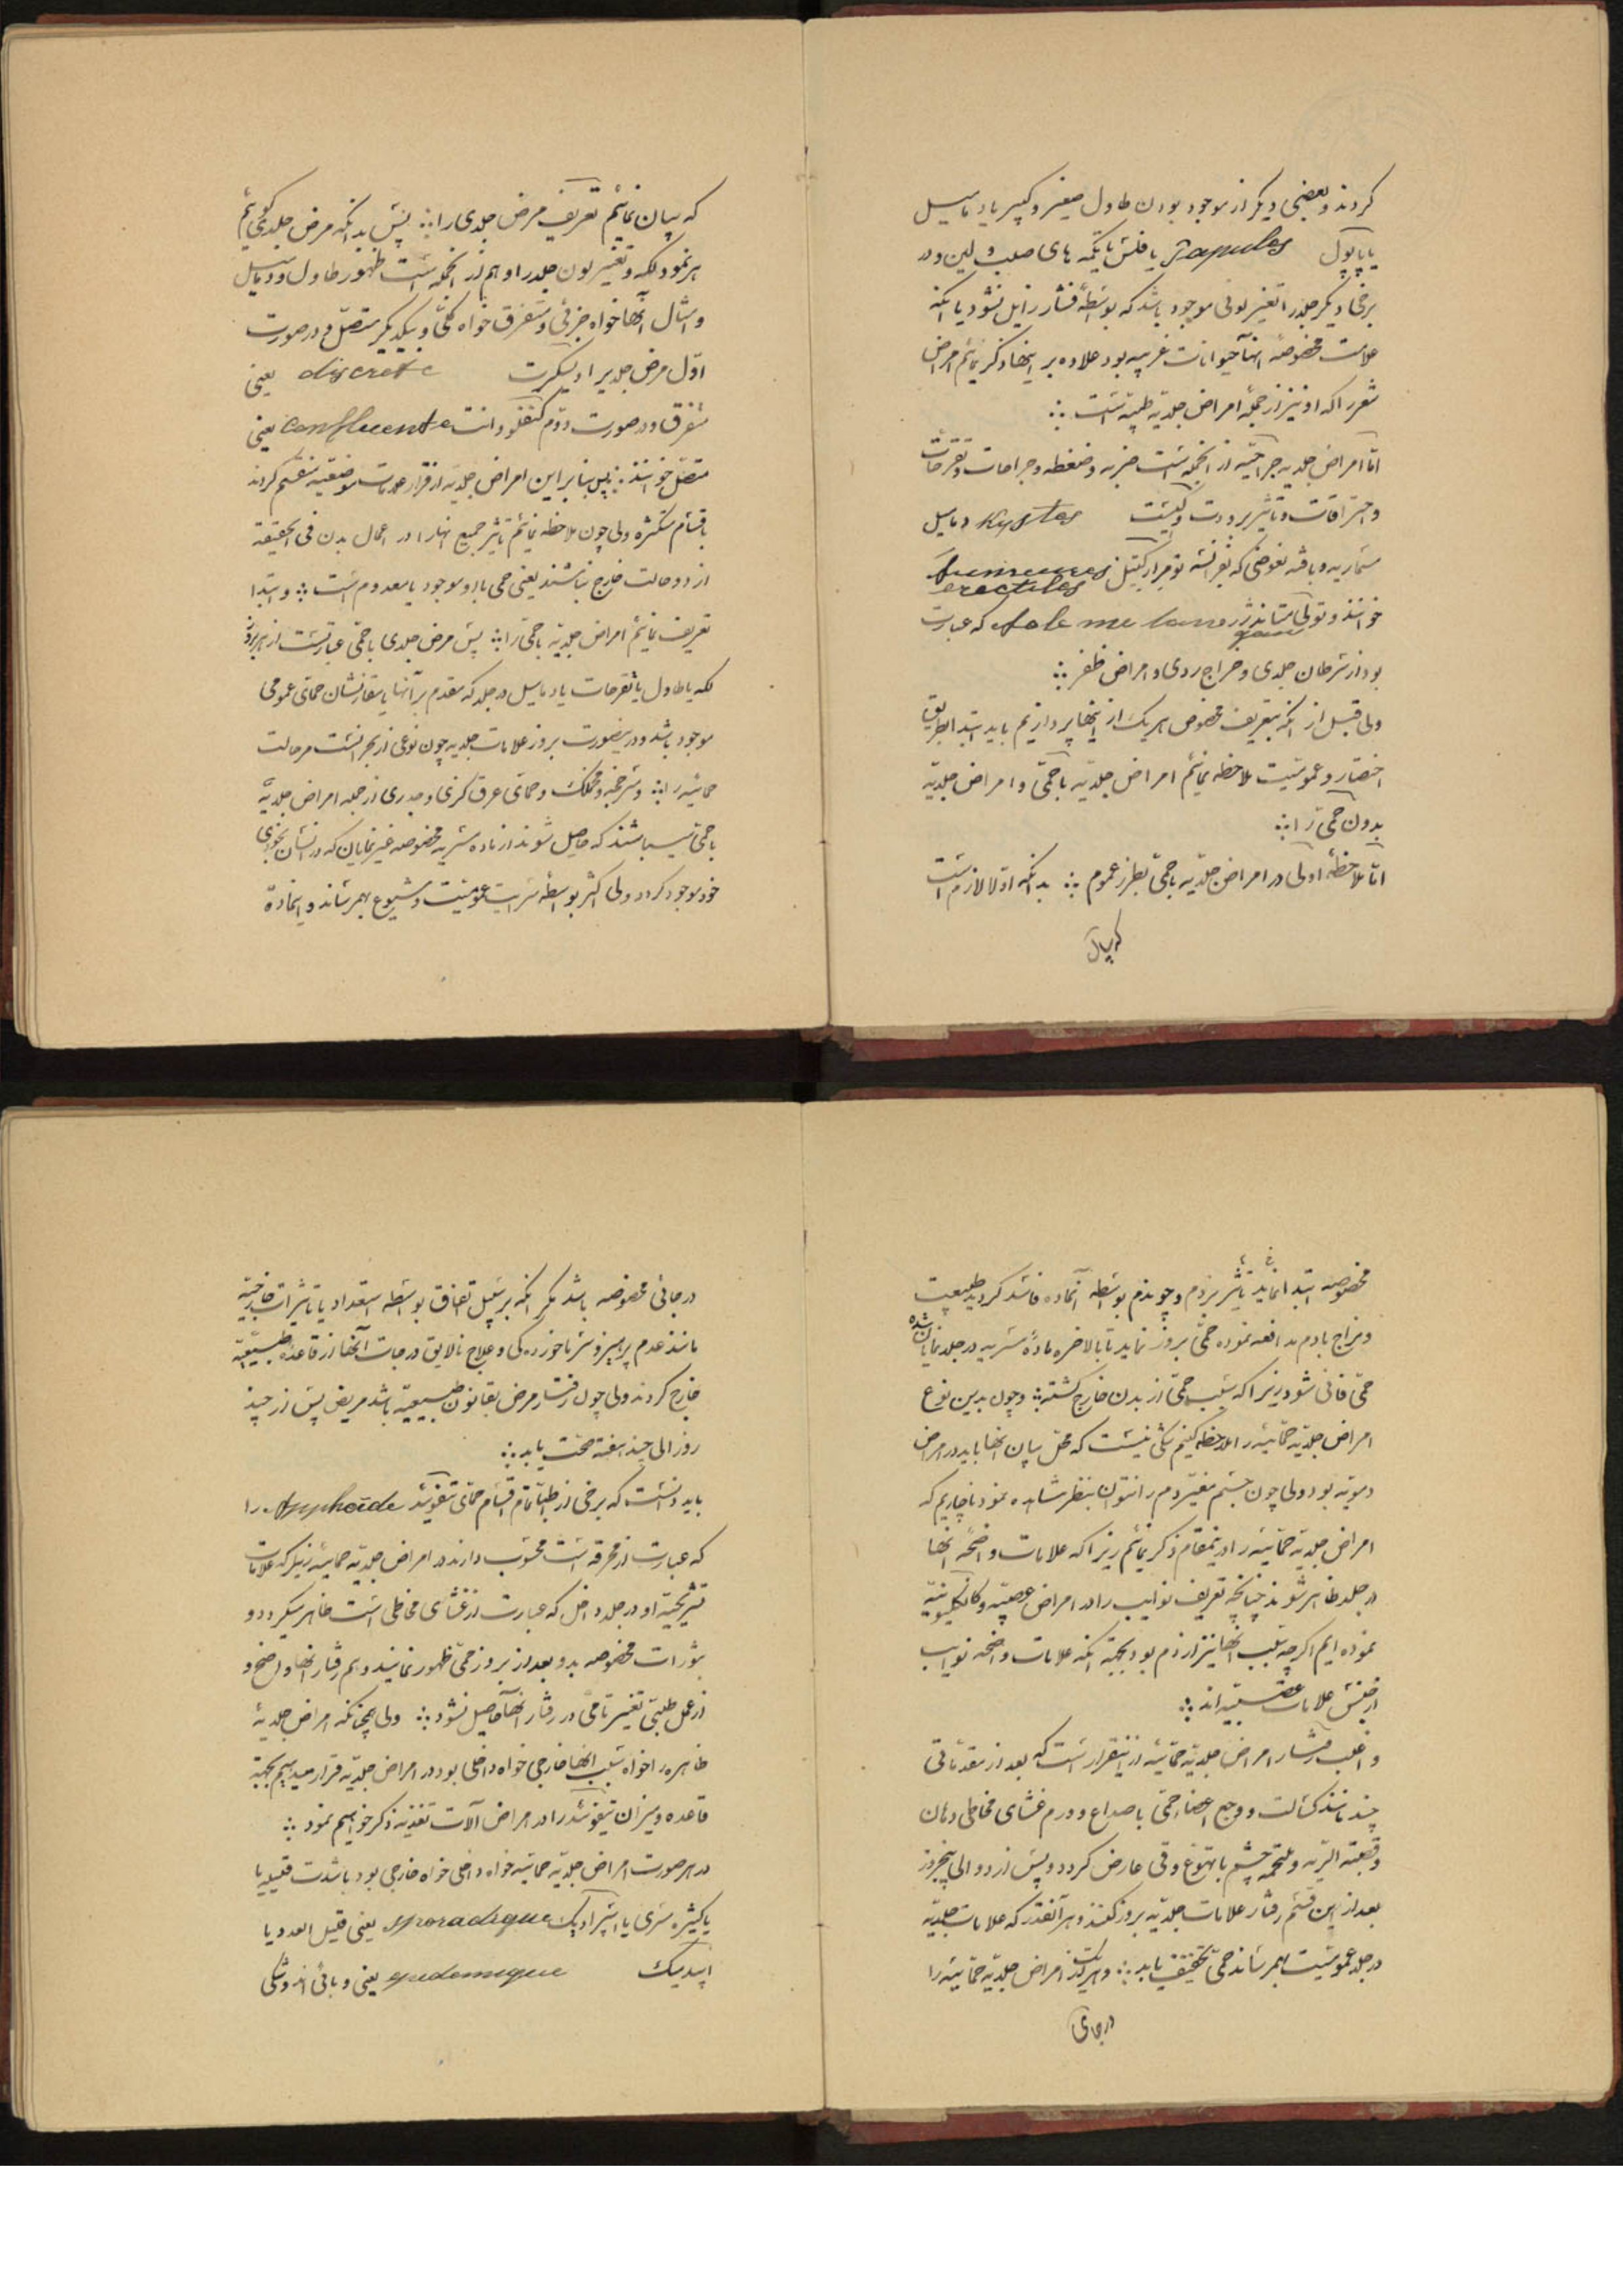 کردند و بعضی دیگر از موجود بودن طاول صغیر و کبیر یا دمامیل
یا پاپول Papules یا فلس یا تکمه های صلب و لین و در
برخی دیگر جلد را تغییر لونی موجود باشد که بواسطهٔ فشار زایل نشود یا آنکه
علامت مخصوصهٔ آنها حیوانات غریبه بود علاوه بر اینها ذکر نمائیم امراض
شعر را که او نیز از جملهٔ امراض جلدیه طبیه است ؞
امّا امراض جلدیه جراحیّه از آنجمله است ضربه و ضغطه و جراحات و تقرحات
و احتراقات و تاثیر برودت و کیست Kystes و مامیل
مسماریه و بافه نعوضی که بفرانسه تومر ارکتیل Tumeures erectiles
خوانند و تولی که عبارت
بود از سرطان جلدی و خراج ردی و امراض ظفر ؞
ولی قبل از آنکه بتعریف مخصوص هر یک از اینها پردازیم باید ابتدا بطریق
اختصار و عمومیّت ملاحظه نمائیم امراض جلدیّه با حمّی و امراض جلدیّه
بدون حمّی را ؞
امّا ملاحظهٔ اولی در امراض جلدیّه با حمّی بطرز عموم ؞ بدانکه اوّلا لازم است
که بیان
که بیان نمائیم تعریف مرض جلدی را ؞ پس بدانکه مرض جلدی گوئیم
هر نمود لکه و تغییر لون جلد را و هم از آنجمله است ظهور طاول و دمامیل
و امثال آنها خواه جزئی و متفرق خواه کلّی و بیکدیگر متصّل و در صورت
اوّل مرض جلدیرا دیسکرت discrete یعنی
متفرق و در صورت دوّم کنفلودانت Confluente یعنی
متصّل خوانند ؞ پس بنابر این امراض جلدیّه از قرار علامات موضعیه منقسم کردند
باقسام متکثره ولی چون ملاحظه نمائیم تاثیر جمیع آنها را در اعمال بدن فی الحقیقه
از دو حالت خارج نباشند یعنی حمی با او موجود یا معدوم است ؞ و ابتدا
تعریف نمائیم امراض جلدیّه با حمّی را ؞ پس مرض جلدی با حمّی عبارتست از هر بروز
لکه یا طاول یا تقرحات یا دمامیل در جلد که مقدم بر آنها یا مقارنشان حمای عمومی
موجود باشد و در اینصورت بروز علامات جلدیه چون نوعی از بحرانست مر حالت
حمائیه را ؞ و سرخجه و مخملک و حمای عرق گزی و جدری از جمله امراض جلدیّه
با حمّی میباشند که حاصل شوند از ماده سمیه مخصوصه غیر نمایان که در انسان بخودی
خود موجود گردد ولی اکثر بواسطه سرایت عمومیّت و شیوع بهمرساند و اینماده
مخصوصه ابتدا نماید تاثیر بر دم و چون دم بواسطه آنماده فاسد گردید طبیعت
و مزاج با دم مدافعه نموده حمّی بروز نماید تا بالاخره مادهٔ سمیه در جلد نمایان شده
حمّی فانی شود زیرا که سبب حمّی از بدن خارج گشته ؞ و چون بدین نوع
امراض جلدیّه حمّائیه را ملاحظه کنیم شکی نیست که محل بیان آنها باید در امراض
دمویّه بود ولی چون بچشم تغیّر دم را نتوان بنظر مشاهده نمود ناچاریم که
امراض جلدیّه حمّائیه را در اینمقام ذکر نمائیم زیرا که علامات واضحهٔ آنها
در جلد ظاهر شوند چنانچه تعریف نوایب را در امراض عصبیّه و کانگلیونیّه
نموده ایم اگر چه سبب آنها نیز از دم بود بجهة آنکه علامات واضحه نوایب
از جنس علامات عصبیّه اند ؞
و اغلب رفتار امراض جلدیّه حمّائیّه از اینقرار است که بعد از مقدماتی
چند مانند کسالت و وجع اعضا حمّی با صداع و ورم غشای مخاطی دهان
و قصبة الریّه و ملتحمه چشم با تهوع و قی عارض گردد و پس از دو الی پنجروز
بعد از این قسم رفتار علامات جلدیّه بروز کنند و هر آنقدر که علامات جلدیّه
در جلد عمومیّت بهمرساند حمّی تخفیف یابد ؞ و هر یک از امراض جلدیّه حمّائیّه را
در جای
در جائی مخصوصه باشد مگر آنکه بر سبیل اتفاق بواسطه استعداد یا تاثیرات خارجیّه
مانند عدم پرهیز و سرما خوردگی و علاج نالایق درجات آنها از قاعدهٔ طبیعیّه
خارج کردند ولی چون رفتار مرض بقانون طبیعیّه باشد مریض پس از چند
روز الی چند هفته صحّت یابد ؞
باید دانست که برخی از اطبّا تمام اقسام حمّای تیفوئید Typhoïde را
که عبارت از محرقه است محسوب دارند در امراض جلدیّه حمائیه زیرا که علامات
تشریحیّه او در جلد داخل که عبارت از غشای مخاطی است ظاهر میگردد و
بثورات مخصوصه بدو بعد از بروز حمّی ظهور نمایند و هم رفتار آنها واضح و
از عمل طبّی تغییر تامّی در رفتار آنها حاصل نشود ؞ ولی همچنانکه امراض جلدیهٔ
ظاهره را خواه سبب آنها خارجی خواه داخلی بود در امراض جلدیّه قرار میدهیم بجهة
قاعده و میزان تیفوئید را در امراض آلات تغذیه ذکر خواهیم نمود ؞
در هر صورت امراض جلدیّه حمائیه خواه داخلی خواه خارجی بود با شدت قلیله یا
یا کثیره مسری یا اسپرادیک sporadique یعنی قلیل العدد یا
اپیدمیک epidemique یعنی وبائی اند